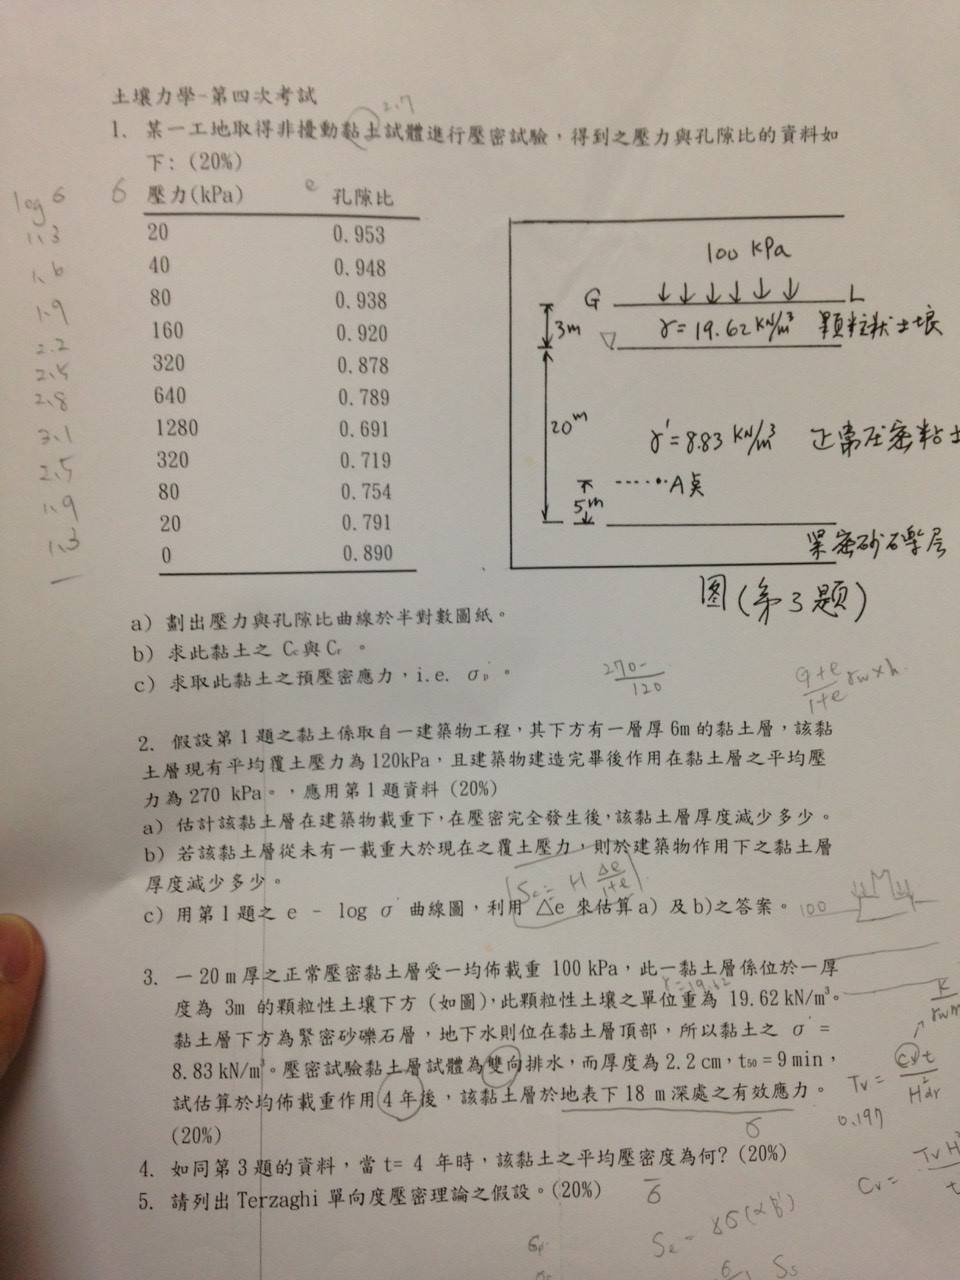 土壤力學-第四次考試
2.7
1. 某一工地取得非擾動黏土試體進行壓密試驗，得到之壓力與孔隙比的資料如
下: (20%)
log σ σ 壓力(kPa) e 孔隙比
1.3 20 0.953
1.6 40 0.948
1.9 80 0.938
2.2 160 0.920
2.5 320 0.878
2.8 640 0.789
3.1 1280 0.691
2.5 320 0.719
1.9 80 0.754
1.3 20 0.791
0 0.890
100 kPa
G L
3m γ = 19.62 KN/m³ 顆粒狀土壤
20m γ' = 8.83 KN/m³ 正常压密粘土
A点
5m
緊密砂石礫层
图(第3題)
a) 劃出壓力與孔隙比曲線於半對數圖紙。
b) 求此黏土之 Cc與Cr 。
c) 求取此黏土之預壓密應力，i.e. σp' 。
270-
120
G+e
1+e
γw×h
2. 假設第1題之黏土係取自一建築物工程，其下方有一層厚6m的黏土層，該黏
土層現有平均覆土壓力為120kPa，且建築物建造完畢後作用在黏土層之平均壓
力為270 kPa。，應用第1題資料 (20%)
a) 估計該黏土層在建築物載重下，在壓密完全發生後，該黏土層厚度減少多少。
b) 若該黏土層從未有一載重大於現在之覆土壓力，則於建築物作用下之黏土層
厚度減少多少。
Sc = H Δe
1+e
c) 用第1題之 e - log σ' 曲線圖，利用 Δe 來估算a) 及b)之答案。
100
3. 一20 m厚之正常壓密黏土層受一均佈載重 100 kPa，此一黏土層係位於一厚
γ=19.62
度為 3m 的顆粒性土壤下方 (如圖)，此顆粒性土壤之單位重為 19.62 kN/m³。
黏土層下方為緊密砂礫石層，地下水則位在黏土層頂部，所以黏土之 σ' =
8.83 kN/m³。壓密試驗黏土層試體為雙向排水，而厚度為2.2 cm，t50 = 9 min，
試估算於均佈載重作用4年後，該黏土層於地表下18 m深處之有效應力。
(20%)
K
γw m
Tv = Cv t
H²dr
0.197
σ
4. 如同第3題的資料，當t= 4 年時，該黏土之平均壓密度為何? (20%)
5. 請列出Terzaghi單向度壓密理論之假設。(20%)
Cv = Tv H²
t